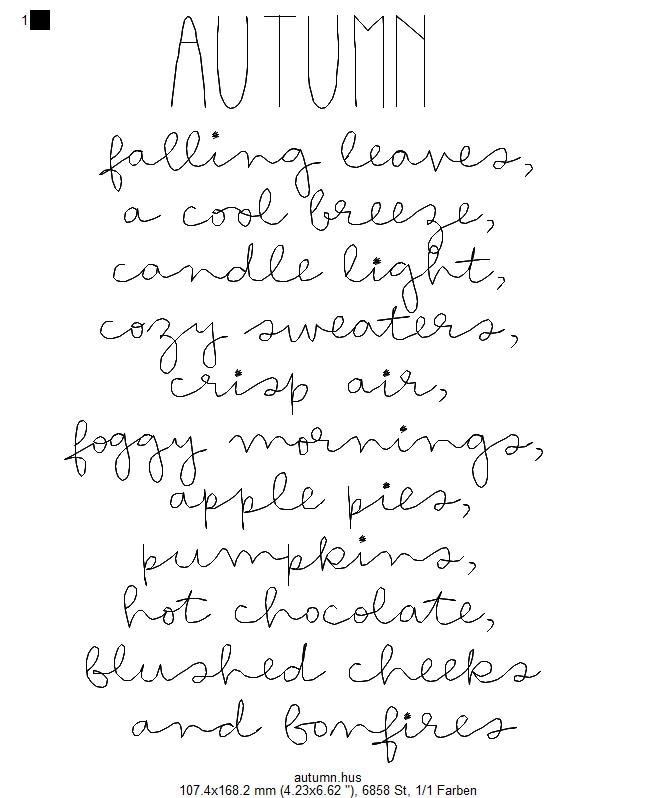 1
AUTUMN
falling leaves,
a cool breeze,
candle light,
cozy sweaters,
crisp air,
foggy mornings,
apple pies,
pumpkins,
hot chocolate,
blushed cheeks
and bonfires
autumn.hus
107.4x168.2 mm (4.23x6.62 "), 6858 St, 1/1 Farben